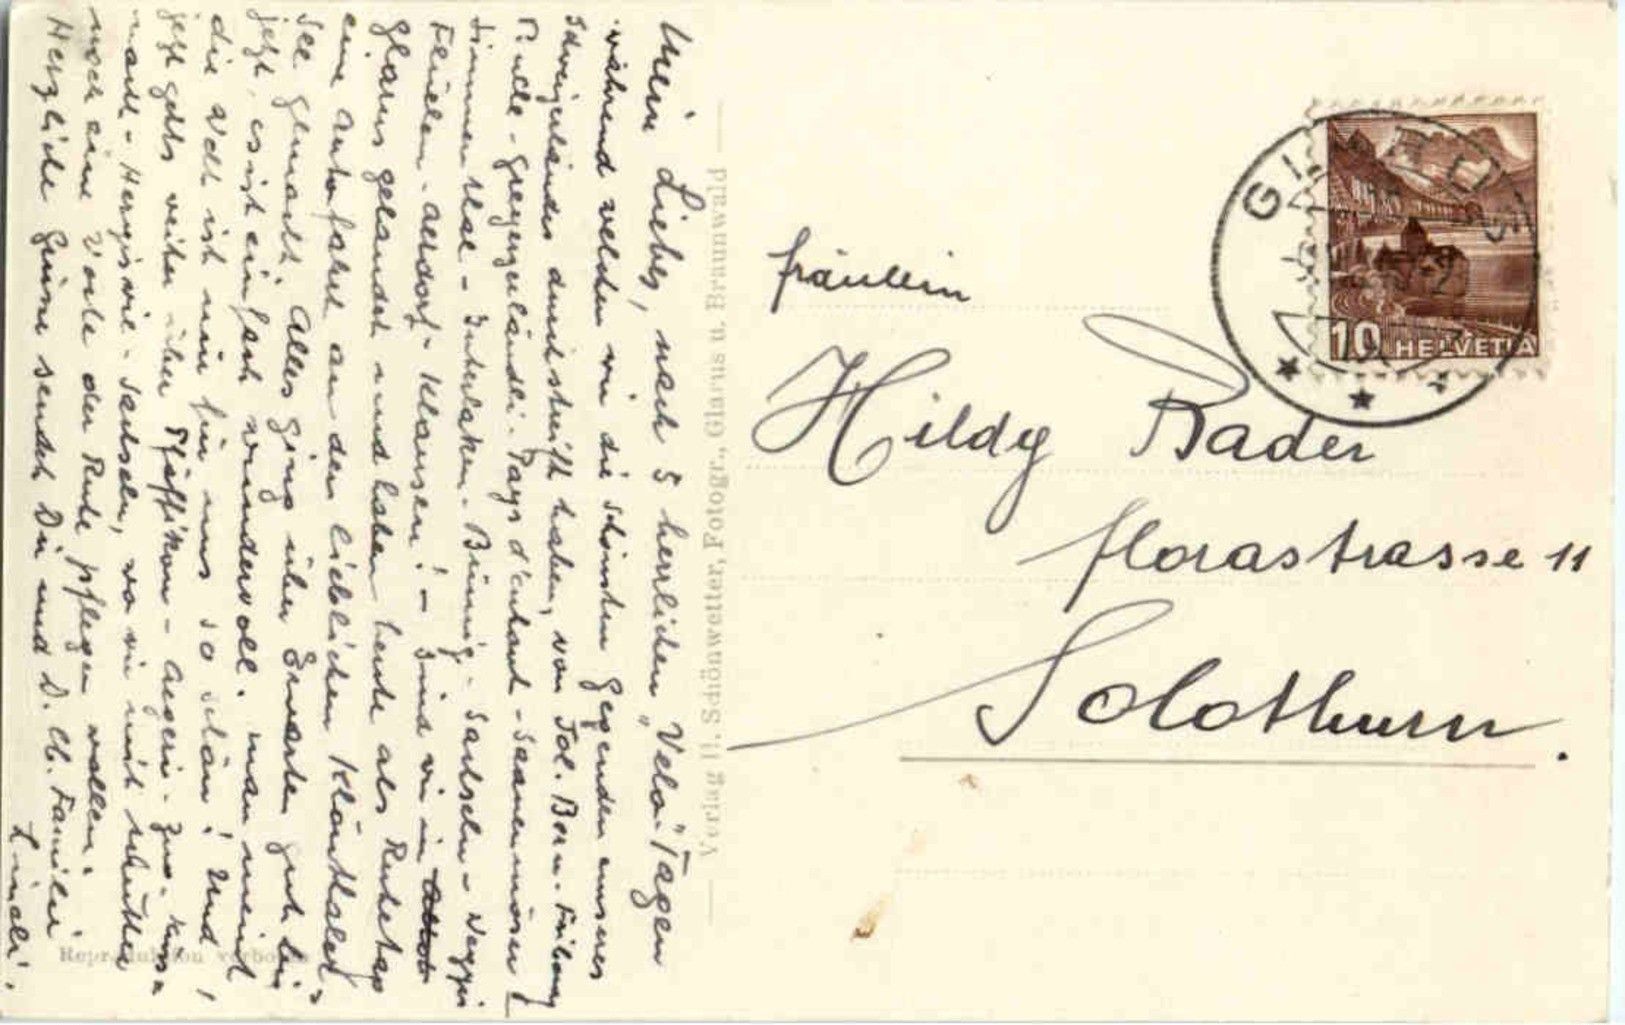 Mein Liebes, nach 5 herrlichen "Velo" Tagen
während welchen wir die schönsten Gegenden unseres
Schweizerlandes durchstreift haben, von Sol. Bern - Fribourg
Greyerzerländli - Pays d'enhaut - Saanenmöser
Simmenthal - Interlaken - Brünnig - Sachseln - Weggis
Flüelen - Altdorf - Klausen! - Sind wir in
Glarus gelandet und haben heute als Ruhetag
eine Autofahrt an den lieblichen Klönthaler
See gemacht. Alles ging über Erwarten gut bis
jetzt, es ist einfach wundervoll. Man meint
die Welt ist nur für uns so schön! Und
jetzt gehts weiter über Pfäffikon - Aegeri - Zug - Küss-
nacht - Hergiswil - Sachseln, wo wir mit
noch eine Woche der Ruhe pflegen wollen.
Herzliche Grüsse sendet Dir und D. lb. Familie
Verlag H. Schönwetter, Fotogr., Glarus u. Braunwald
Reproduktion verboten
Fräulein
Hildy Bader
Florastrasse 11
Solothurn.
10 HELVETIA